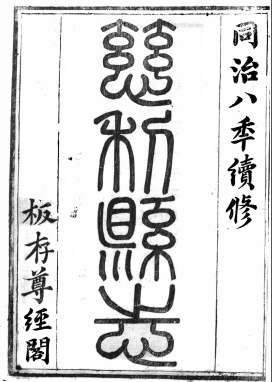 同治八秊續修
慈利縣志
板存尊經閣